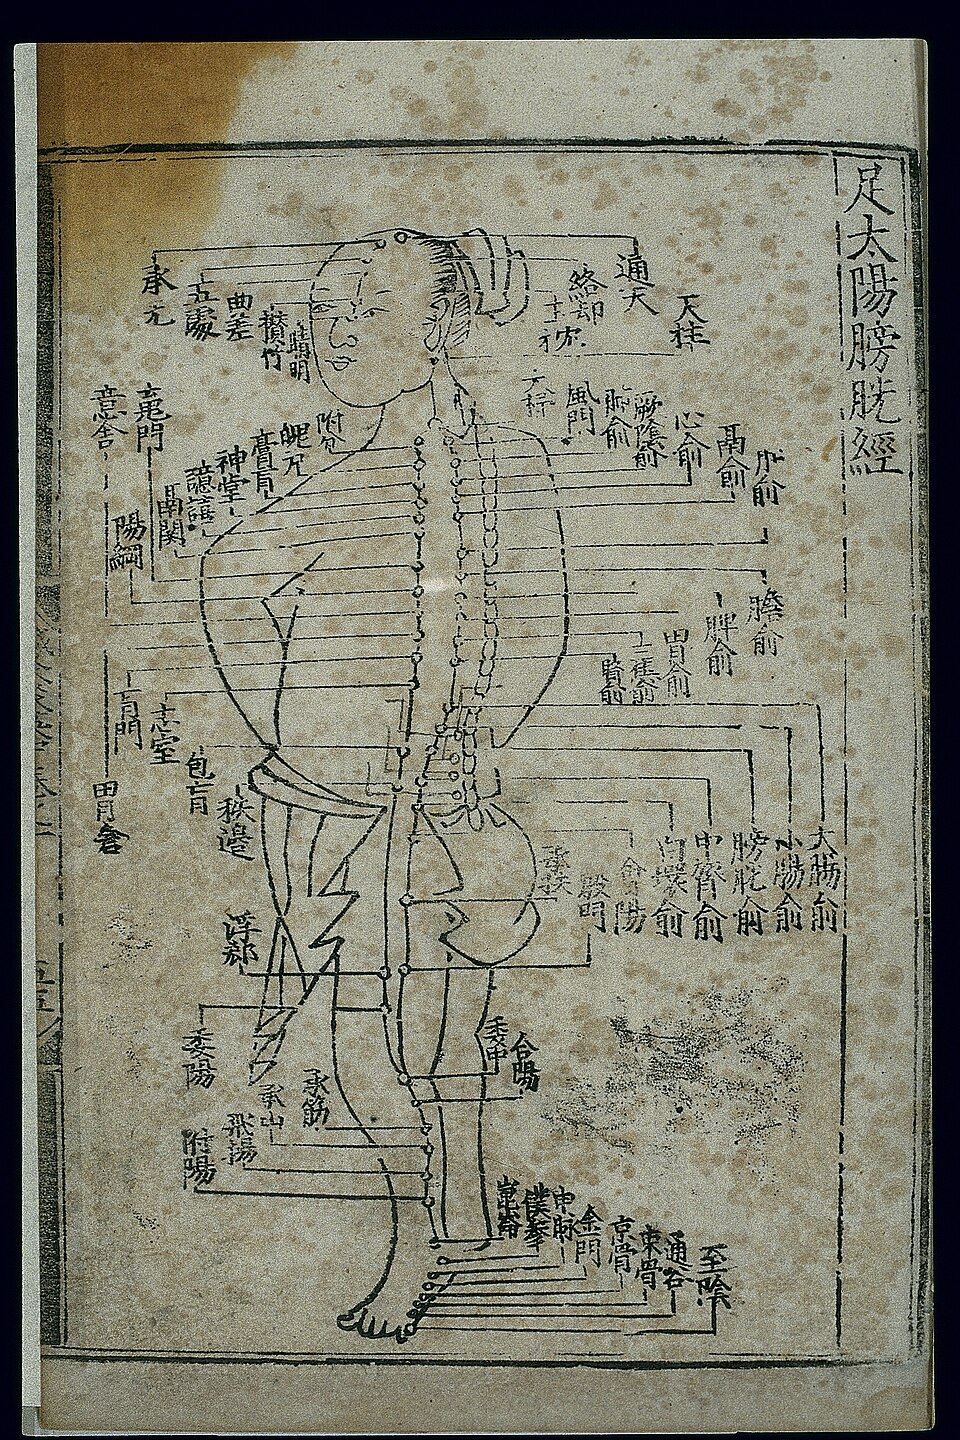 足太陽膀胱經
通天
絡却
天柱
承光
五處
曲差
攢竹
睛明
大杼
風門
肺俞
厥陰俞
心俞
膈俞
肝俞
附分
魄戶
膏肓
神堂
譩譆
膈関
魂門
意舍
陽綱
膽俞
脾俞
胃俞
三焦俞
腎俞
肓門
志室
胃倉
包肓
秩邊
大腸俞
小腸俞
膀胱俞
中膂俞
白環俞
會陽
殷門
浮郄
委陽
委中
合陽
承筋
承山
飛揚
附陽
崑崙
僕參
申脉
金門
京骨
束骨
通谷
至陰